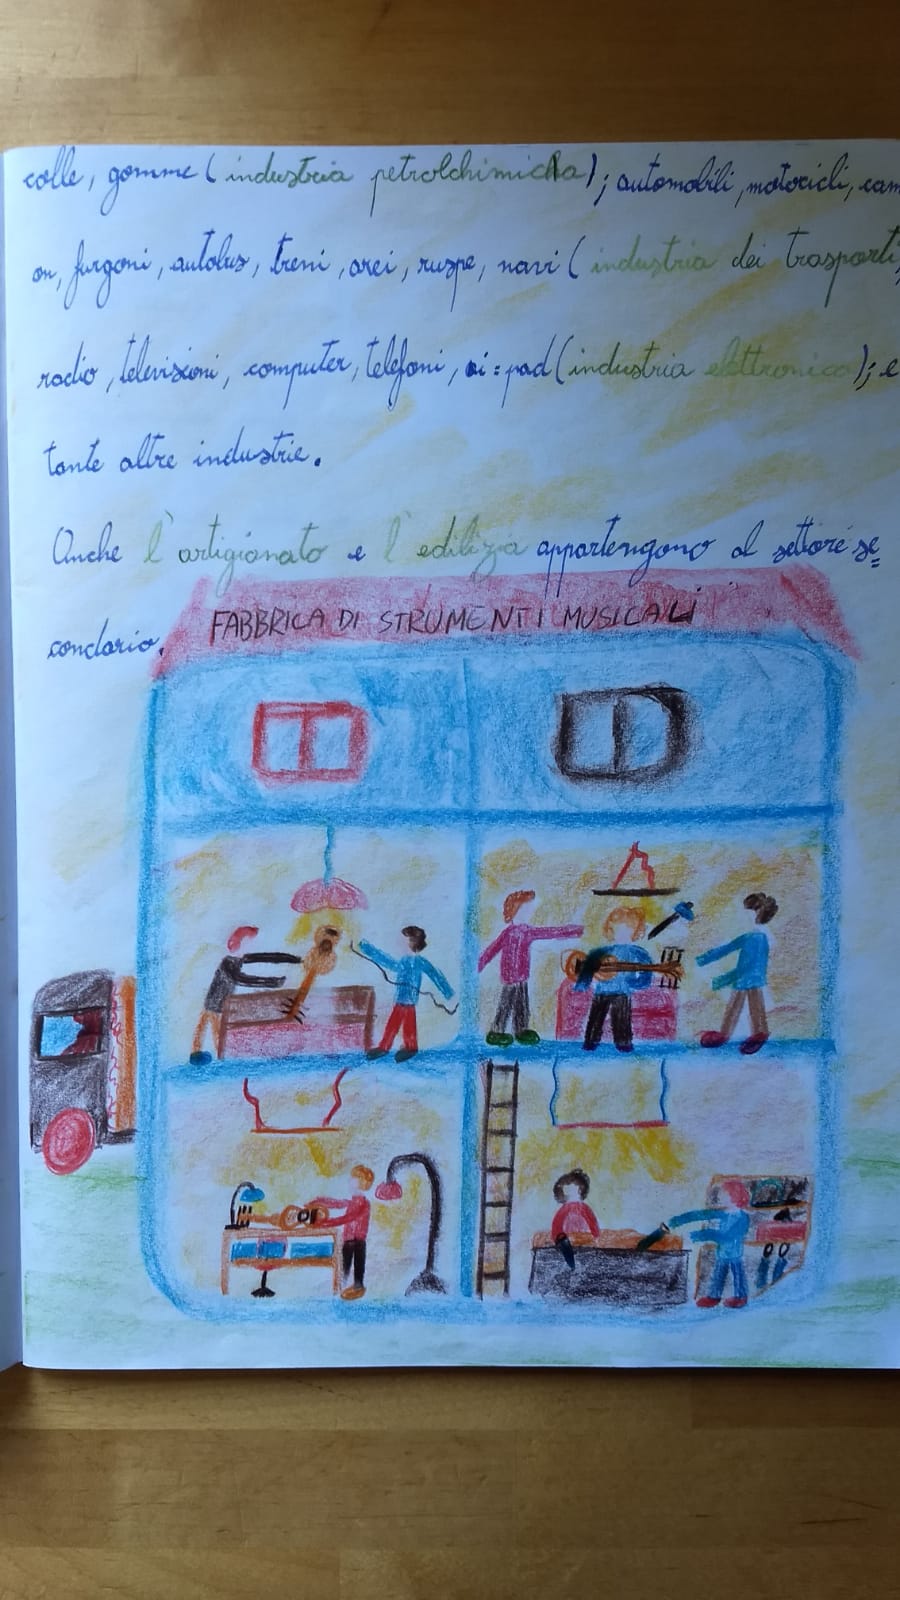 colle, gomme (industria petrolchimicha); automobili, motocicli, cam
on, furgoni, autobus, treni, arei, ruspe, navi (industria dei trasporti)
radio, televisioni, computer, telefoni, ai=pad (industria elettronica); e
tante altre industrie.
Anche l'artigianato e l'edilizia appartengono al settore se=
condario.
FABBRICA DI STRUMENTI MUSICALI